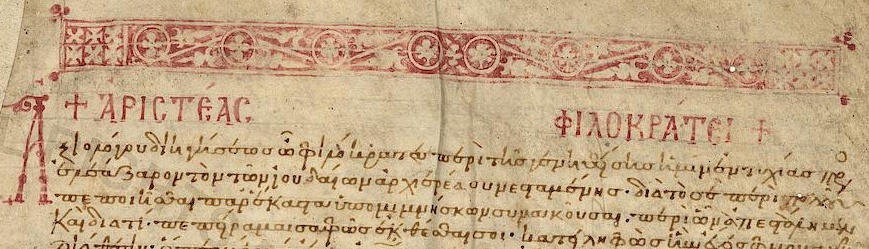 + ἈΡΙΣΤΈΑΣ ΦΙΛΟΚΡΆΤΕΙ +
Ἀξιολόγου διηγήσεως ὦ φιλόκρατες περὶ τῆς γενηθείσης ἡμῖν ἐντυχίας πρ
ἐλεάζαρον τὸν τῶν ἰουδαίων ἀρχιερέα συνεσταμένης· διὰ τὸ σὲ περὶ πολλοῦ
πεποιῆσθαι παρέκαστα ὑπομιμνήσκων συνακοῦσαι· περὶ ὧν ἀπεστάλημεν
Καὶ διατί· πεπείραμαι σαφῶς ἐκθέσθαι σοι· κατειληφὼς